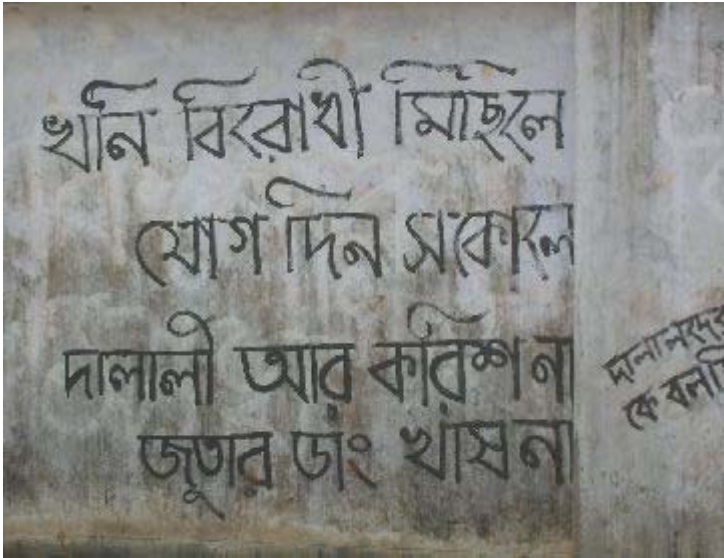 খনি বিরোধী মিছিলে
যোগ দিন সকোলে
দালালী আর করিশ না
জুতার ডাং খাষ না
দালালদের
কে